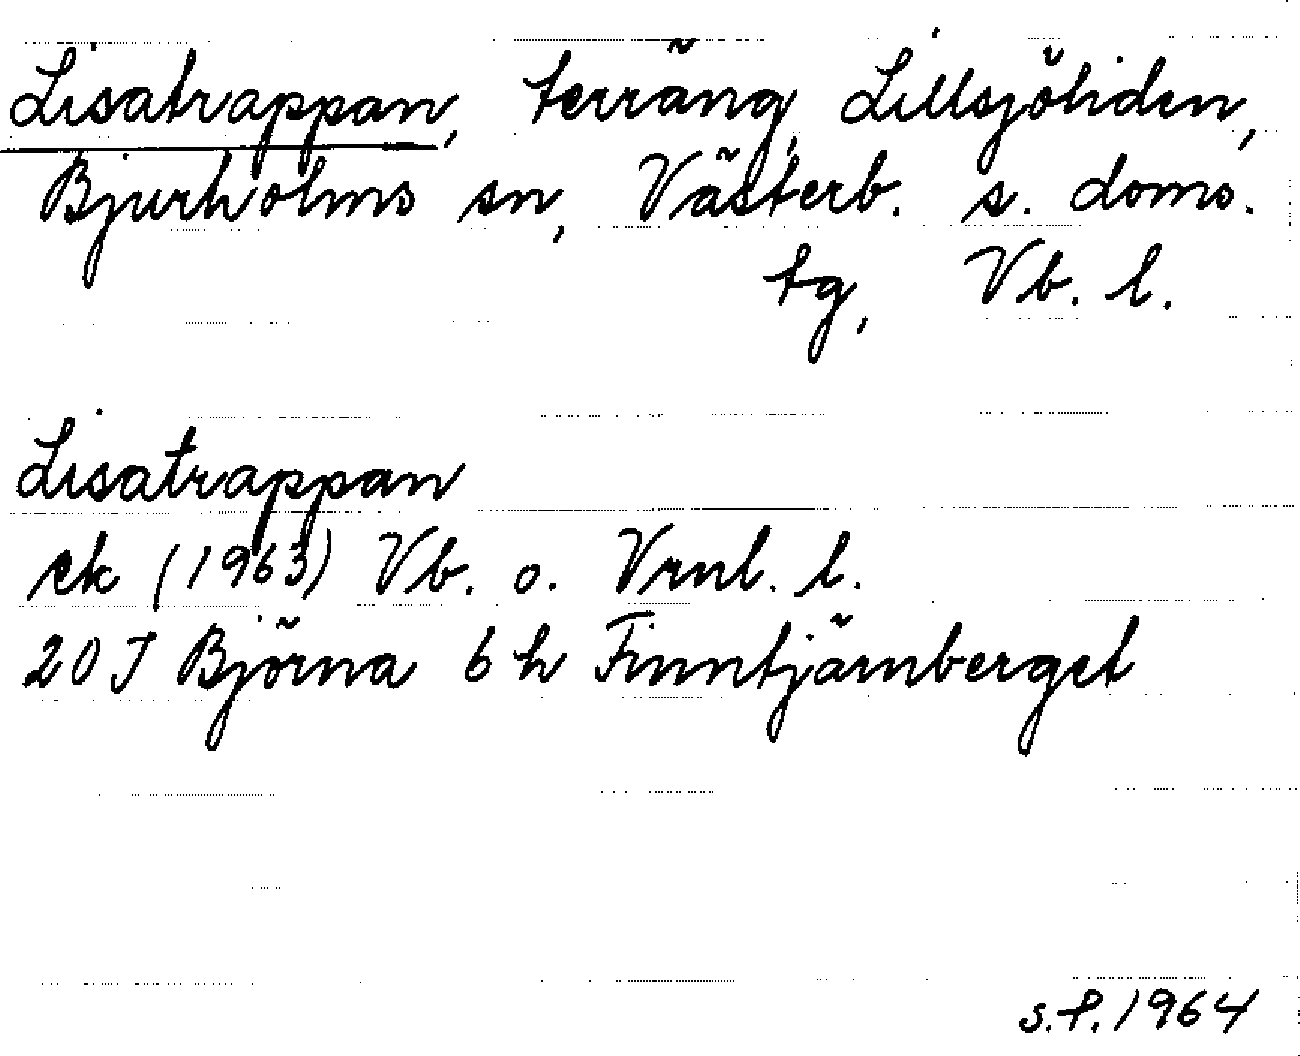 Lisatrappan, terräng, Lillsjöliden,
Bjurholms sn, Västerb. s. doms.
tg, Vb. l.
Lisatrappan
ek (1963) Vb. o. Vrnl. l.
20 J Björna 6 h Finntjärnberget
s.f. 1964